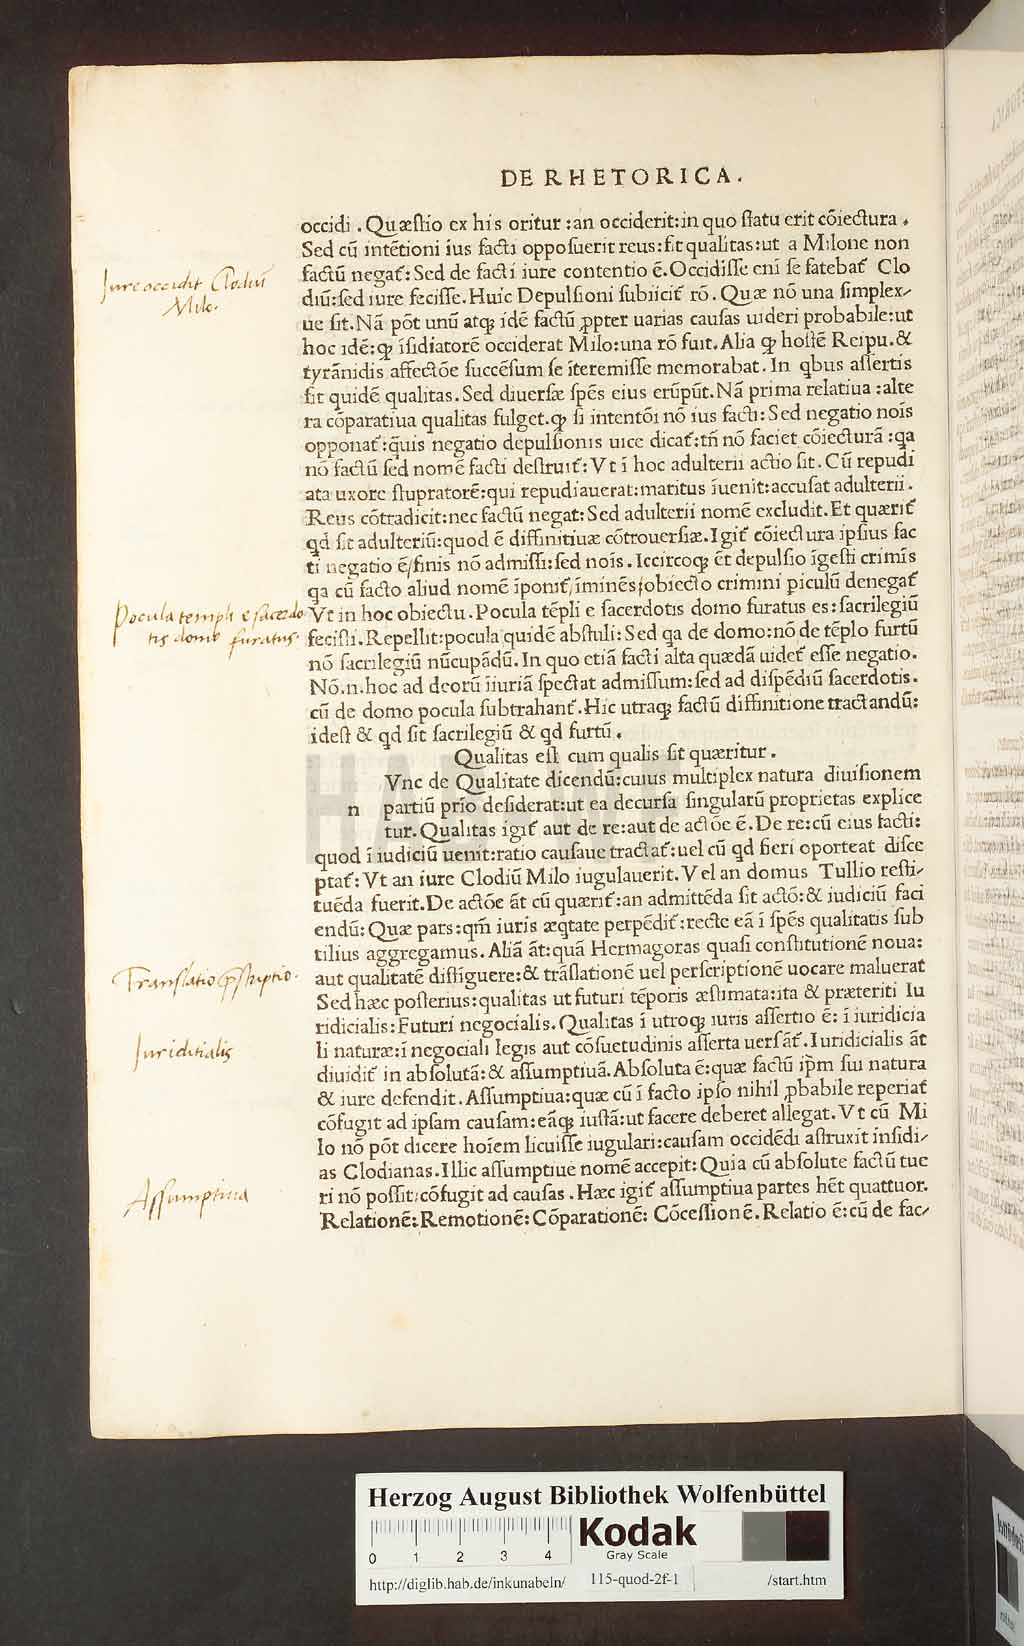 DE RHETORICA.
occidi. Quæstio ex his oritur: an occiderit: in quo statu erit cõiectura.
Sed cũ intẽtioni ius facti opposuerit reus: fit qualitas: ut a Milone non
factũ negať: Sed de facti iure contentio ẽ. Occidisse eni se fatebať Clo
diũ: sed iure fecisse. Huic Depulsioni subiiciť rõ. Quæ nõ una simplex-
ue sit. Nã põt unũ atqꝫ idẽ factũ ꝓpter uarias causas uideri probabile: ut
hoc idẽ: ꝙ ĩsidiatorẽ occiderat Milo: una rõ fuit. Alia ꝙ hostẽ Reipu. &
tyrãnidis affectõe succẽsum se ĩteremisse memorabat. In qbus assertis
fit quidẽ qualitas. Sed diuersæ spẽs eius erũpũt. Nã prima relatiua: alte
ra cõparatiua qualitas fulget. ꝙ si intentõi nõ ius facti: Sed negatio nois
opponať: q̃uis negatio depulsionis uice dicať: tñ nõ faciet cõiecturã: qa
nõ factũ sed nomẽ facti destruiť: Vt ĩ hoc adulterii actio sit. Cũ repudi
ata uxore stupratorẽ: qui repudiauerat: maritus ĩuenit: accusat adulterii.
Reus cõtradicit: nec factũ negat: Sed adulterii nomẽ excludit. Et quæriť
qd sit adulteriũ: quod ẽ diffinitiuæ cõtrouersiæ. Igiť cõiectura ipsius fac
ti negatio ẽ/finis nõ admissi: sed nois. Iccircoqꝫ ẽt depulsio ĩgesti crimĩs
qa cũ facto aliud nomẽ ĩponiť/ĩminẽs/obiecto crimini ꝑiculũ denegať
Vt in hoc obiectu. Pocula tẽpli e sacerdotis domo furatus es: sacrilegiũ
fecisti. Repellit: pocula quidẽ abstuli: Sed qa de domo: nõ de tẽplo furtũ
nõ sacrilegiũ nũcupãdũ. In quo etiã facti alta quædã uideť esse negatio.
Nõ.n. hoc ad deorũ ĩiuriã spectat admissum: sed ad dispẽdiũ sacerdotis.
cũ de domo pocula subtrahanť. Hic utraqꝫ factũ diffinitione tractandũ:
idest & qd sit sacrilegiũ & qd furtũ.
Qualitas est cum qualis sit quæritur.
Vnc de Qualitate dicendũ: cuius multiplex natura diuisionem
n partiũ prĩo desiderat: ut ea decursa singularũ proprietas explice
tur. Qualitas igiť aut de re: aut de actõe ẽ. De re: cũ eius facti:
quod ĩ iudiciũ uenit: ratio causaue tractať: uel cũ qd fieri oporteat disce
ptať: Vt an iure Clodiũ Milo iugulauerit. Vel an domus Tullio resti-
tuẽda fuerit. De actõe ãt cũ quæriť: an admittẽda sit actõ: & iudiciũ faci
endũ: Quæ pars: qm̃ iuris æqtate perpẽdiť: recte eã ĩ spẽs qualitatis sub
tilius aggregamus. Aliã ãt: quã Hermagoras quasi constitutionẽ noua:
aut qualitatẽ distĩguere: & trãslationẽ uel perscriptionẽ uocare maluerať
Sed hæc posterius: qualitas ut futuri tẽporis æstimata: ita & præteriti Iu
ridicialis: Futuri negocialis. Qualitas ĩ utroqꝫ iuris assertio ẽ: ĩ iuridicia
li naturæ: ĩ negociali legis aut cõsuetudinis asserta uersãť. Iuridicialis ãt
diuidiť in absolutã: & assumptiuã. Absoluta ẽ: quæ factũ ip̃m sui natura
& iure defendit. Assumptiua: quæ cũ ĩ facto ipso nihil ꝓbabile reperiať
cõfugit ad ipsam causam: eãqꝫ iustã: ut facere deberet allegat. Vt cũ Mi
lo nõ põt dicere hoĩem licuisse iugulari: causam occidẽdi astruxit insidi-
as Clodianas. Illic assumptiue nomẽ accepit: Quia cũ absolute factũ tue
ri nõ possit: cõfugit ad causas. Hæc igiť assumptiua partes hẽt quattuor.
Relationẽ: Remotionẽ: Cõparationẽ: Cõcessionẽ. Relatio ẽ: cũ de fac-
Iure occidit Clodiũ
Milo.
Pocula templi e sacerdo
tis domo furatus.
Translatio pscriptio.
Iuriditialis
Assumptiua
HAB WF
Herzog August Bibliothek Wolfenbüttel
0 1 2 3 4
Kodak
Gray Scale
http://diglib.hab.de/inkunabeln/ 115-quod-2f-1 /start.htm